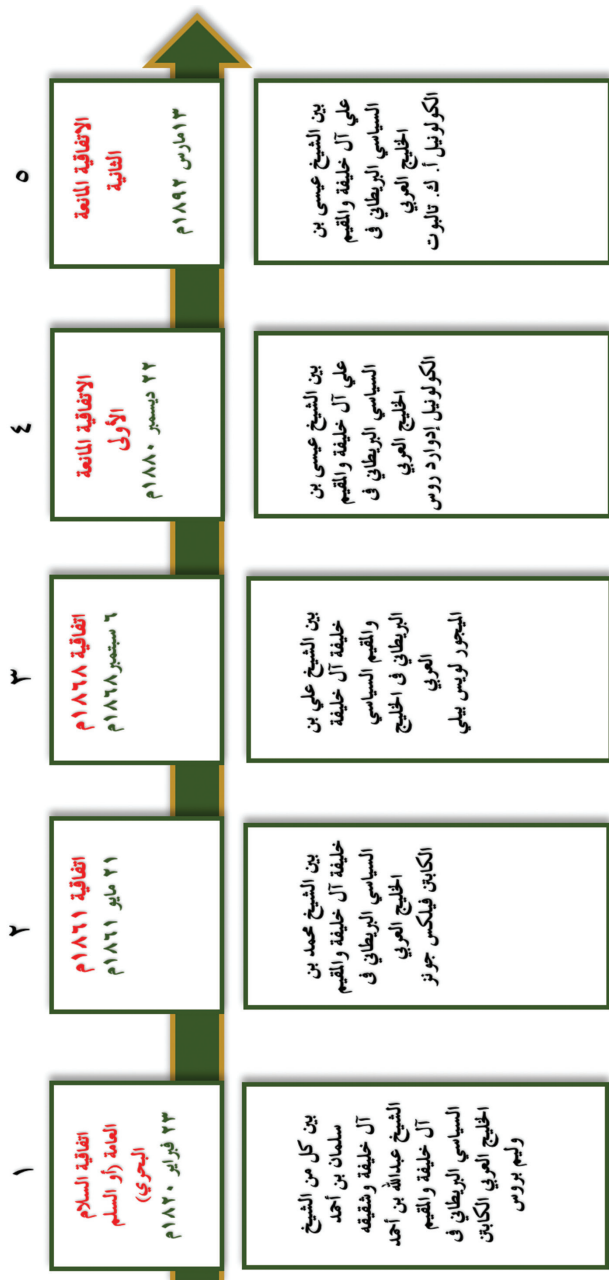 ١
اتفاقية السلام
العامة (أو السلم
البحري)
٢٣ فبراير ١٨٢٠م
بين كل من الشيخ
سلمان بن أحمد
آل خليفة وشقيقه
الشيخ عبدالله بن أحمد
آل خليفة والمقيم
السياسي البريطاني في
الخليج العربي الكابتن
وليم بروس
٢
اتفاقية ١٨٦١م
٢١ مايو ١٨٦١م
بين الشيخ محمد بن
خليفة آل خليفة والمقيم
السياسي البريطاني في
الخليج العربي
الكابتن فيلكس جونز
٣
اتفاقية ١٨٦٨م
٦ سبتمبر ١٨٦٨م
بين الشيخ علي بن
خليفة آل خليفة
والمقيم السياسي
البريطاني في الخليج
العربي
الميجور لويس بيلي
٤
الاتفاقية المانعة
الأولى
٢٢ ديسمبر ١٨٨٠م
بين الشيخ عيسى بن
علي آل خليفة والمقيم
السياسي البريطاني في
الخليج العربي
الكولونيل إدوارد روس
٥
الاتفاقية المانعة
الثانية
١٣مارس ١٨٩٢م
بين الشيخ عيسى بن
علي آل خليفة والمقيم
السياسي البريطاني في
الخليج العربي
الكولونيل أ. ك. تالبوت